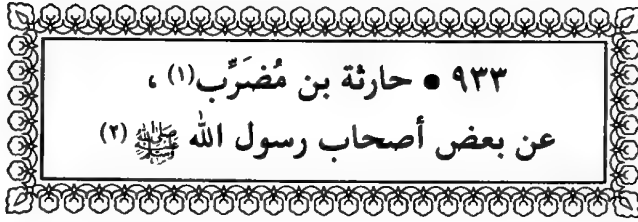 ٩٣٣ • حارثة بن مُضَرِّب(١) ،
عن بعض أصحاب رسول الله ﷺ (٢)